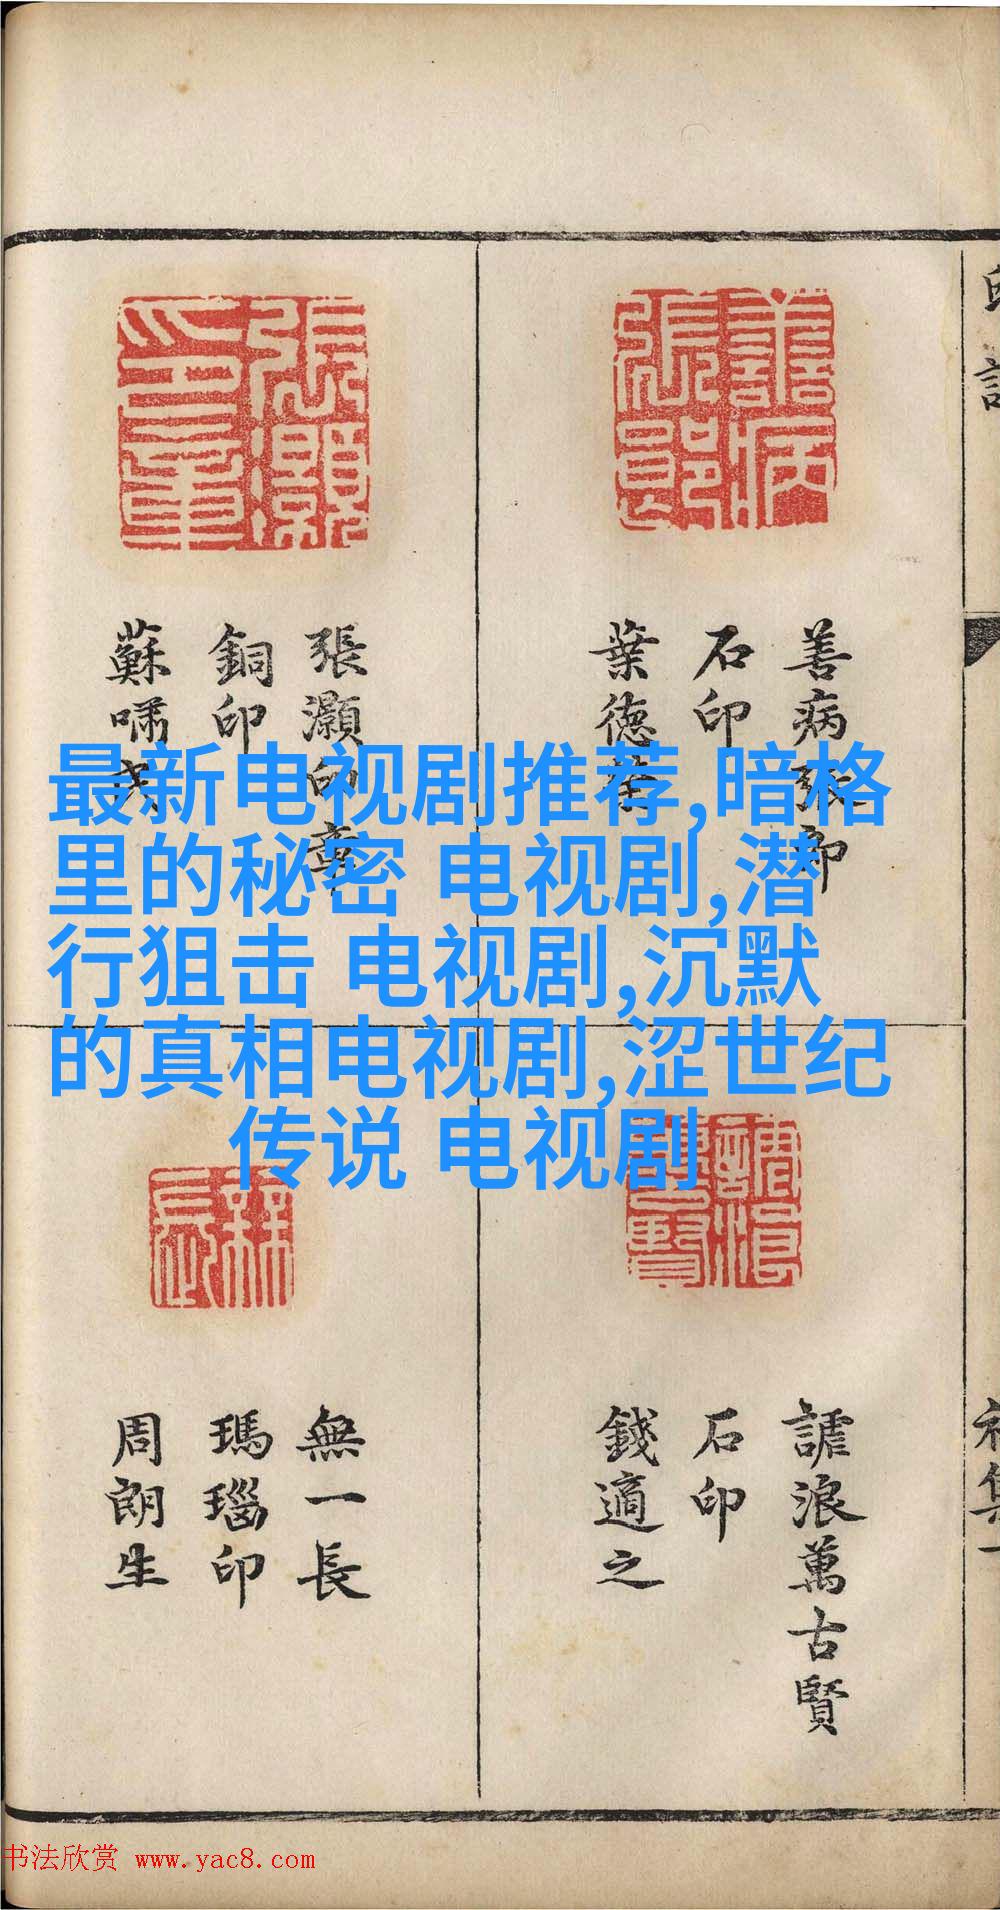 善病張郎
石印
張灝印章
銅印
最新电视剧推荐,暗格
里的秘密 电视剧,潜
行狙击 电视剧,沉默
的真相电视剧,涩世纪
传说 电视剧
謔浪萬古賢
石印
錢適之
無一長
瑪瑙印
周朗生
书法欣赏 www.yac8.com